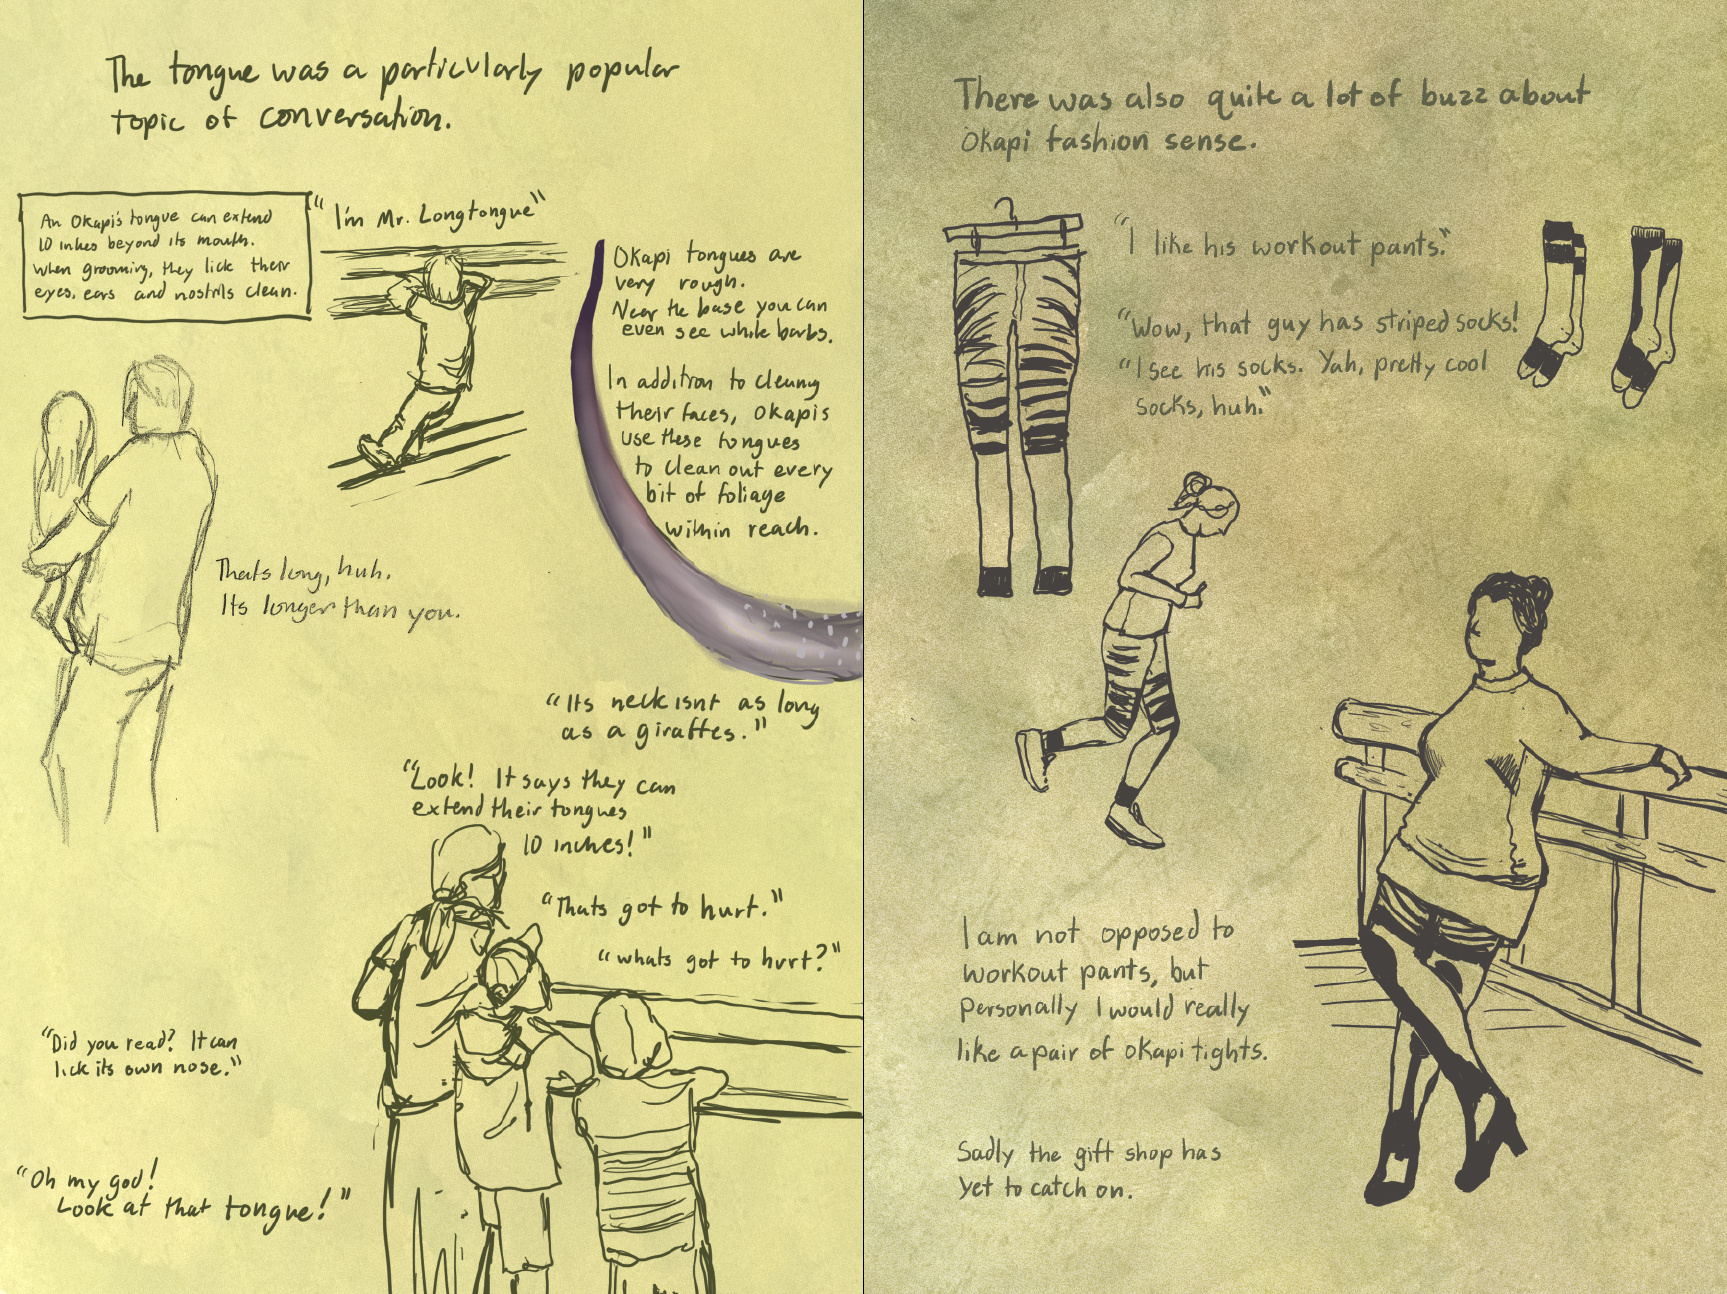 The tongue was a particularly popular
topic of conversation.
An Okapi's tongue can extend
10 inhes beyond its mouth.
When grooming, they lick their
eyes, ears and nostrils clean.
"I'm Mr. Longtongue"
Okapi tongues are
very rough.
Near the base you can
even see white barbs.
In addition to cleaning
their faces, Okapis
use these tongues
to clean out every
bit of foliage
within reach.
Thats long, huh.
Its longer than you.
"Its neck isnt as long
as a giraffes."
"Look! It says they can
extend their tongues
10 inches!"
"Thats got to hurt."
"whats got to hurt?"
"Did you read? It can
lick its own nose."
"Oh my god!
Look at that tongue!"
There was also quite a lot of buzz about
Okapi fashion sense.
"I like his workout pants."
"Wow, that guy has striped socks!
"I see his socks. Yah, pretty cool
socks, huh."
I am not opposed to
workout pants, but
personally I would really
like a pair of okapi tights.
Sadly the gift shop has
yet to catch on.